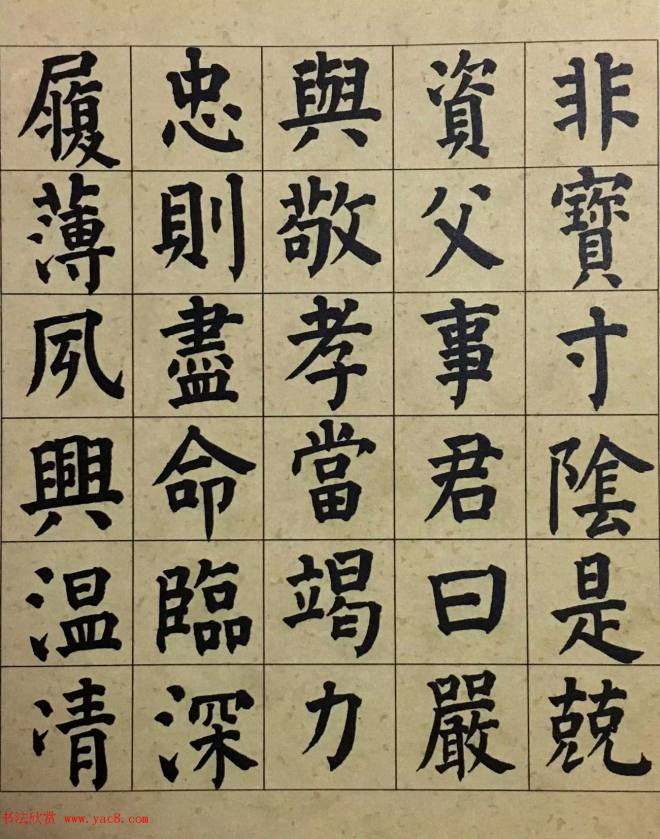 非寶寸陰是兢
資父事君曰嚴
與敬孝當竭力
忠則盡命臨深
履薄夙興温凊
书法欣赏 www.yac8.com